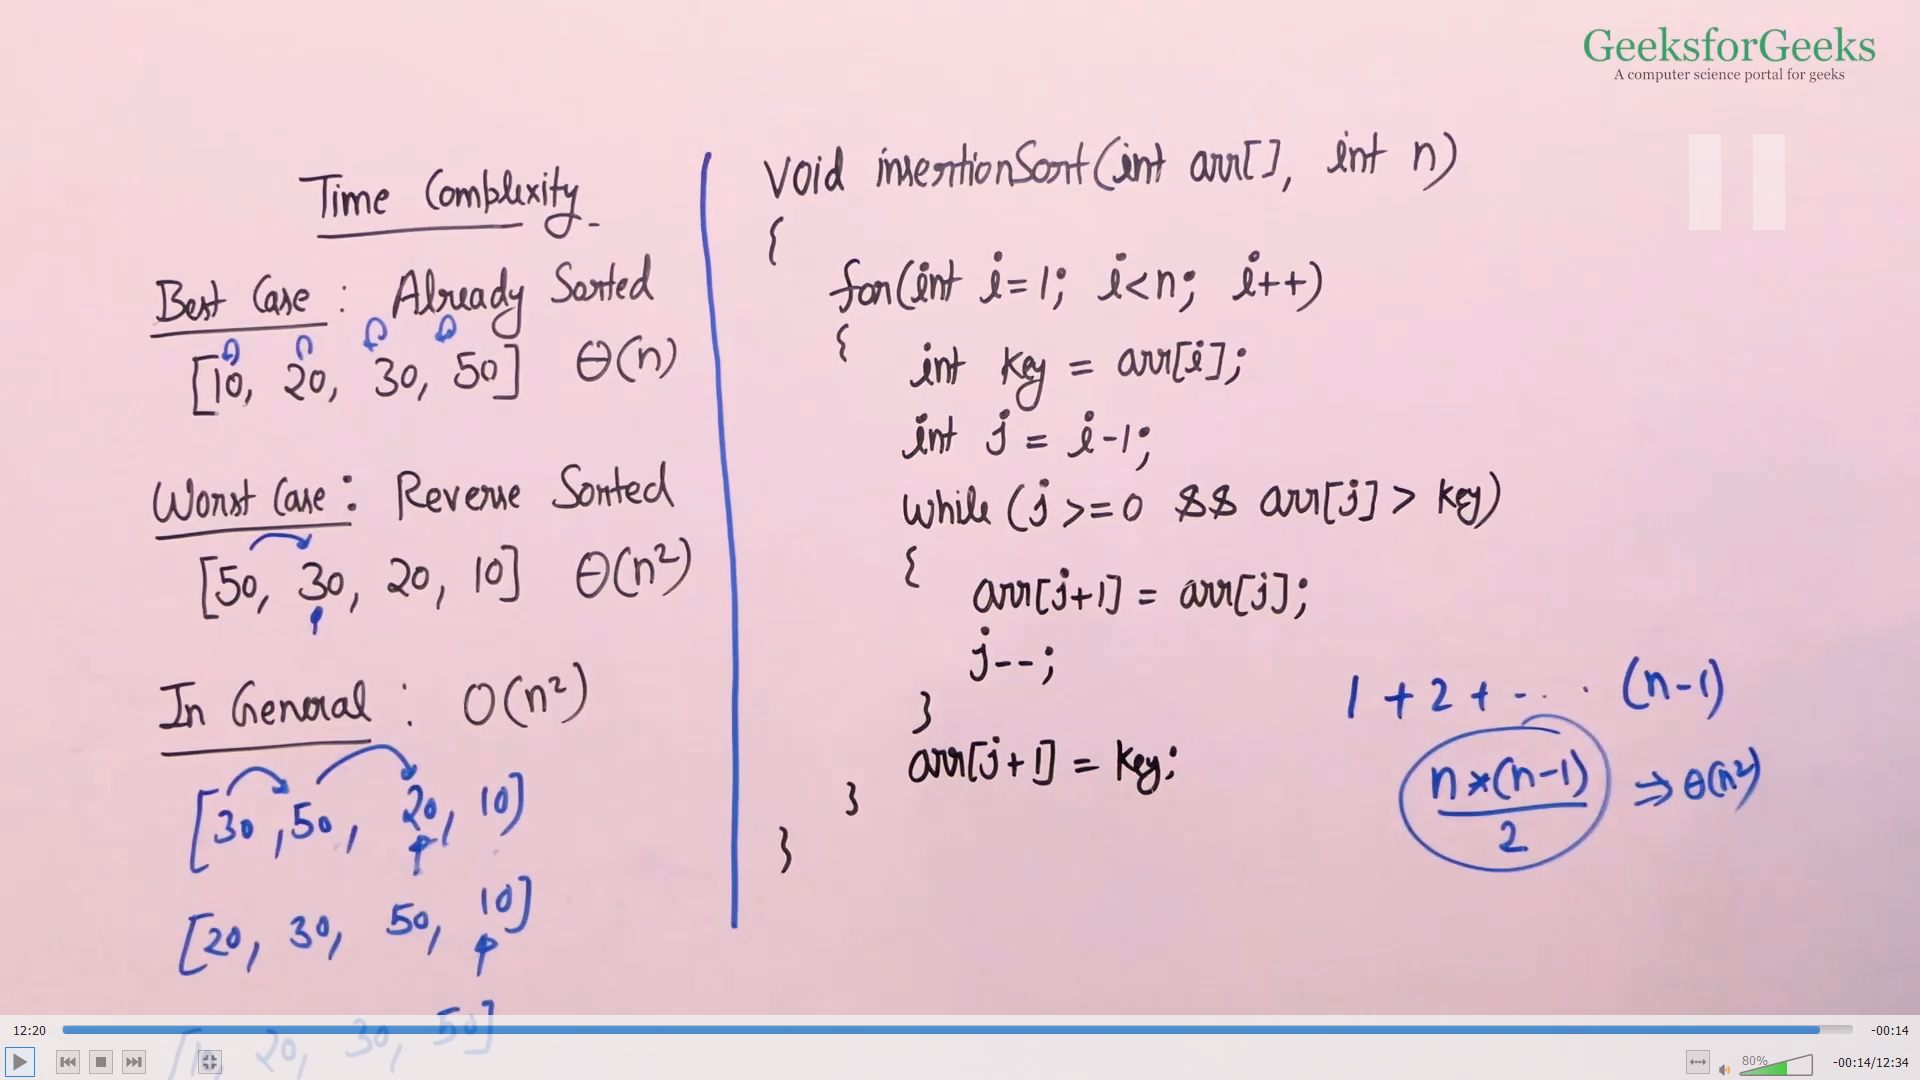 GeeksforGeeks
A computer science portal for geeks
Time Complexity
Best Case : Already Sorted
[10, 20, 30, 50] Θ(n)
Worst Case : Reverse Sorted
[50, 30, 20, 10] Θ(n²)
In General : O(n²)
[30, 50, 20, 10]
[20, 30, 50, 10]
[10, 20, 30, 50]
void insertionSort(int arr[], int n)
{
for(int i=1; i<n; i++)
{
int key = arr[i];
int j = i-1;
while (j >=0 && arr[j] > key)
{
arr[j+1] = arr[j];
j--;
}
arr[j+1] = key;
}
}
1 + 2 + - . . . (n-1)
n*(n-1)
2
⇒ θ(n²)
12:20
-00:14
80%
-00:14/12:34